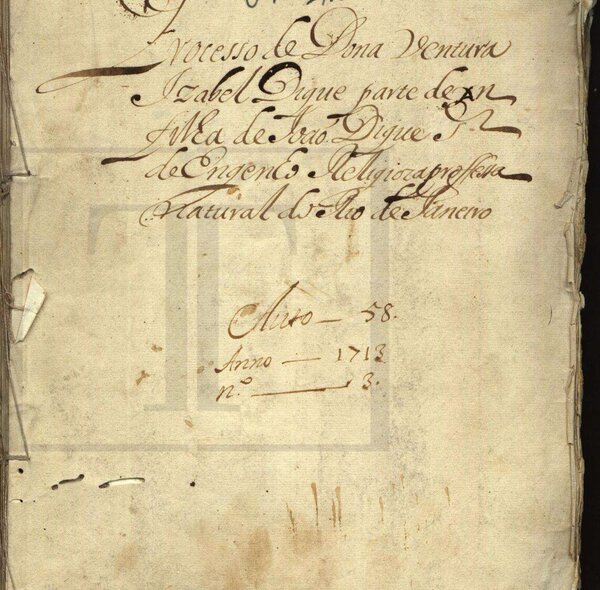 Processo de Dona Ventura
Izabel Dique parte de xn
filha de Joaõ Dique Sr
de Engenho Religioza professa
natural do Rio de Janeiro
Auto — 58.
Anno — 1713
n.º — 3.